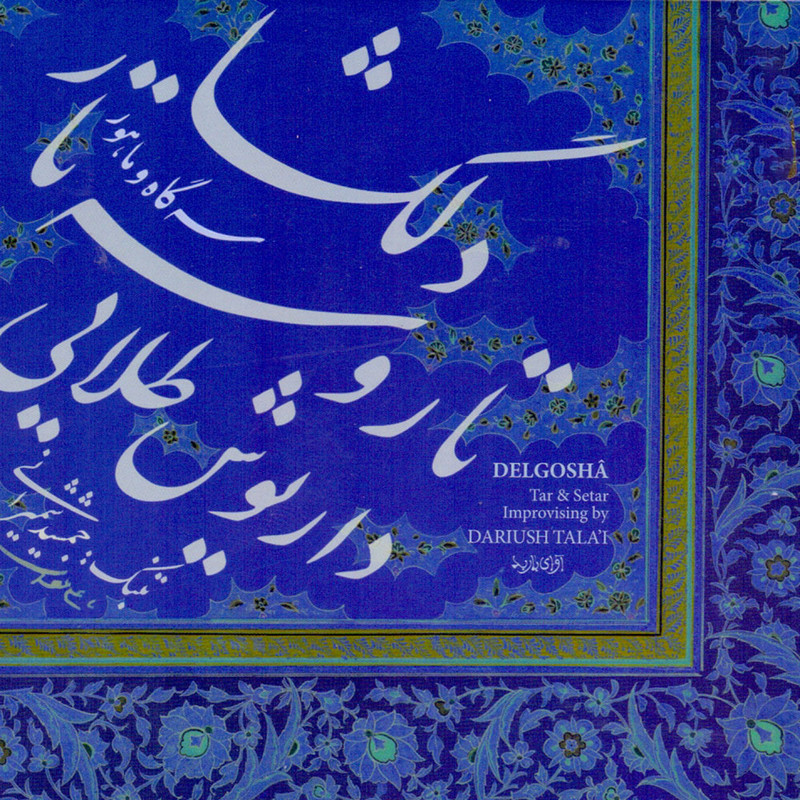 دلگشا
سه‌گاه و ماهور
تار و سه‌تار
داریوش طلایی
تنبک: جمشید شمیرانی
DELGOSHÂ
Tar & Setar
Improvising by
DARIUSH TALA'I
آوای باربد